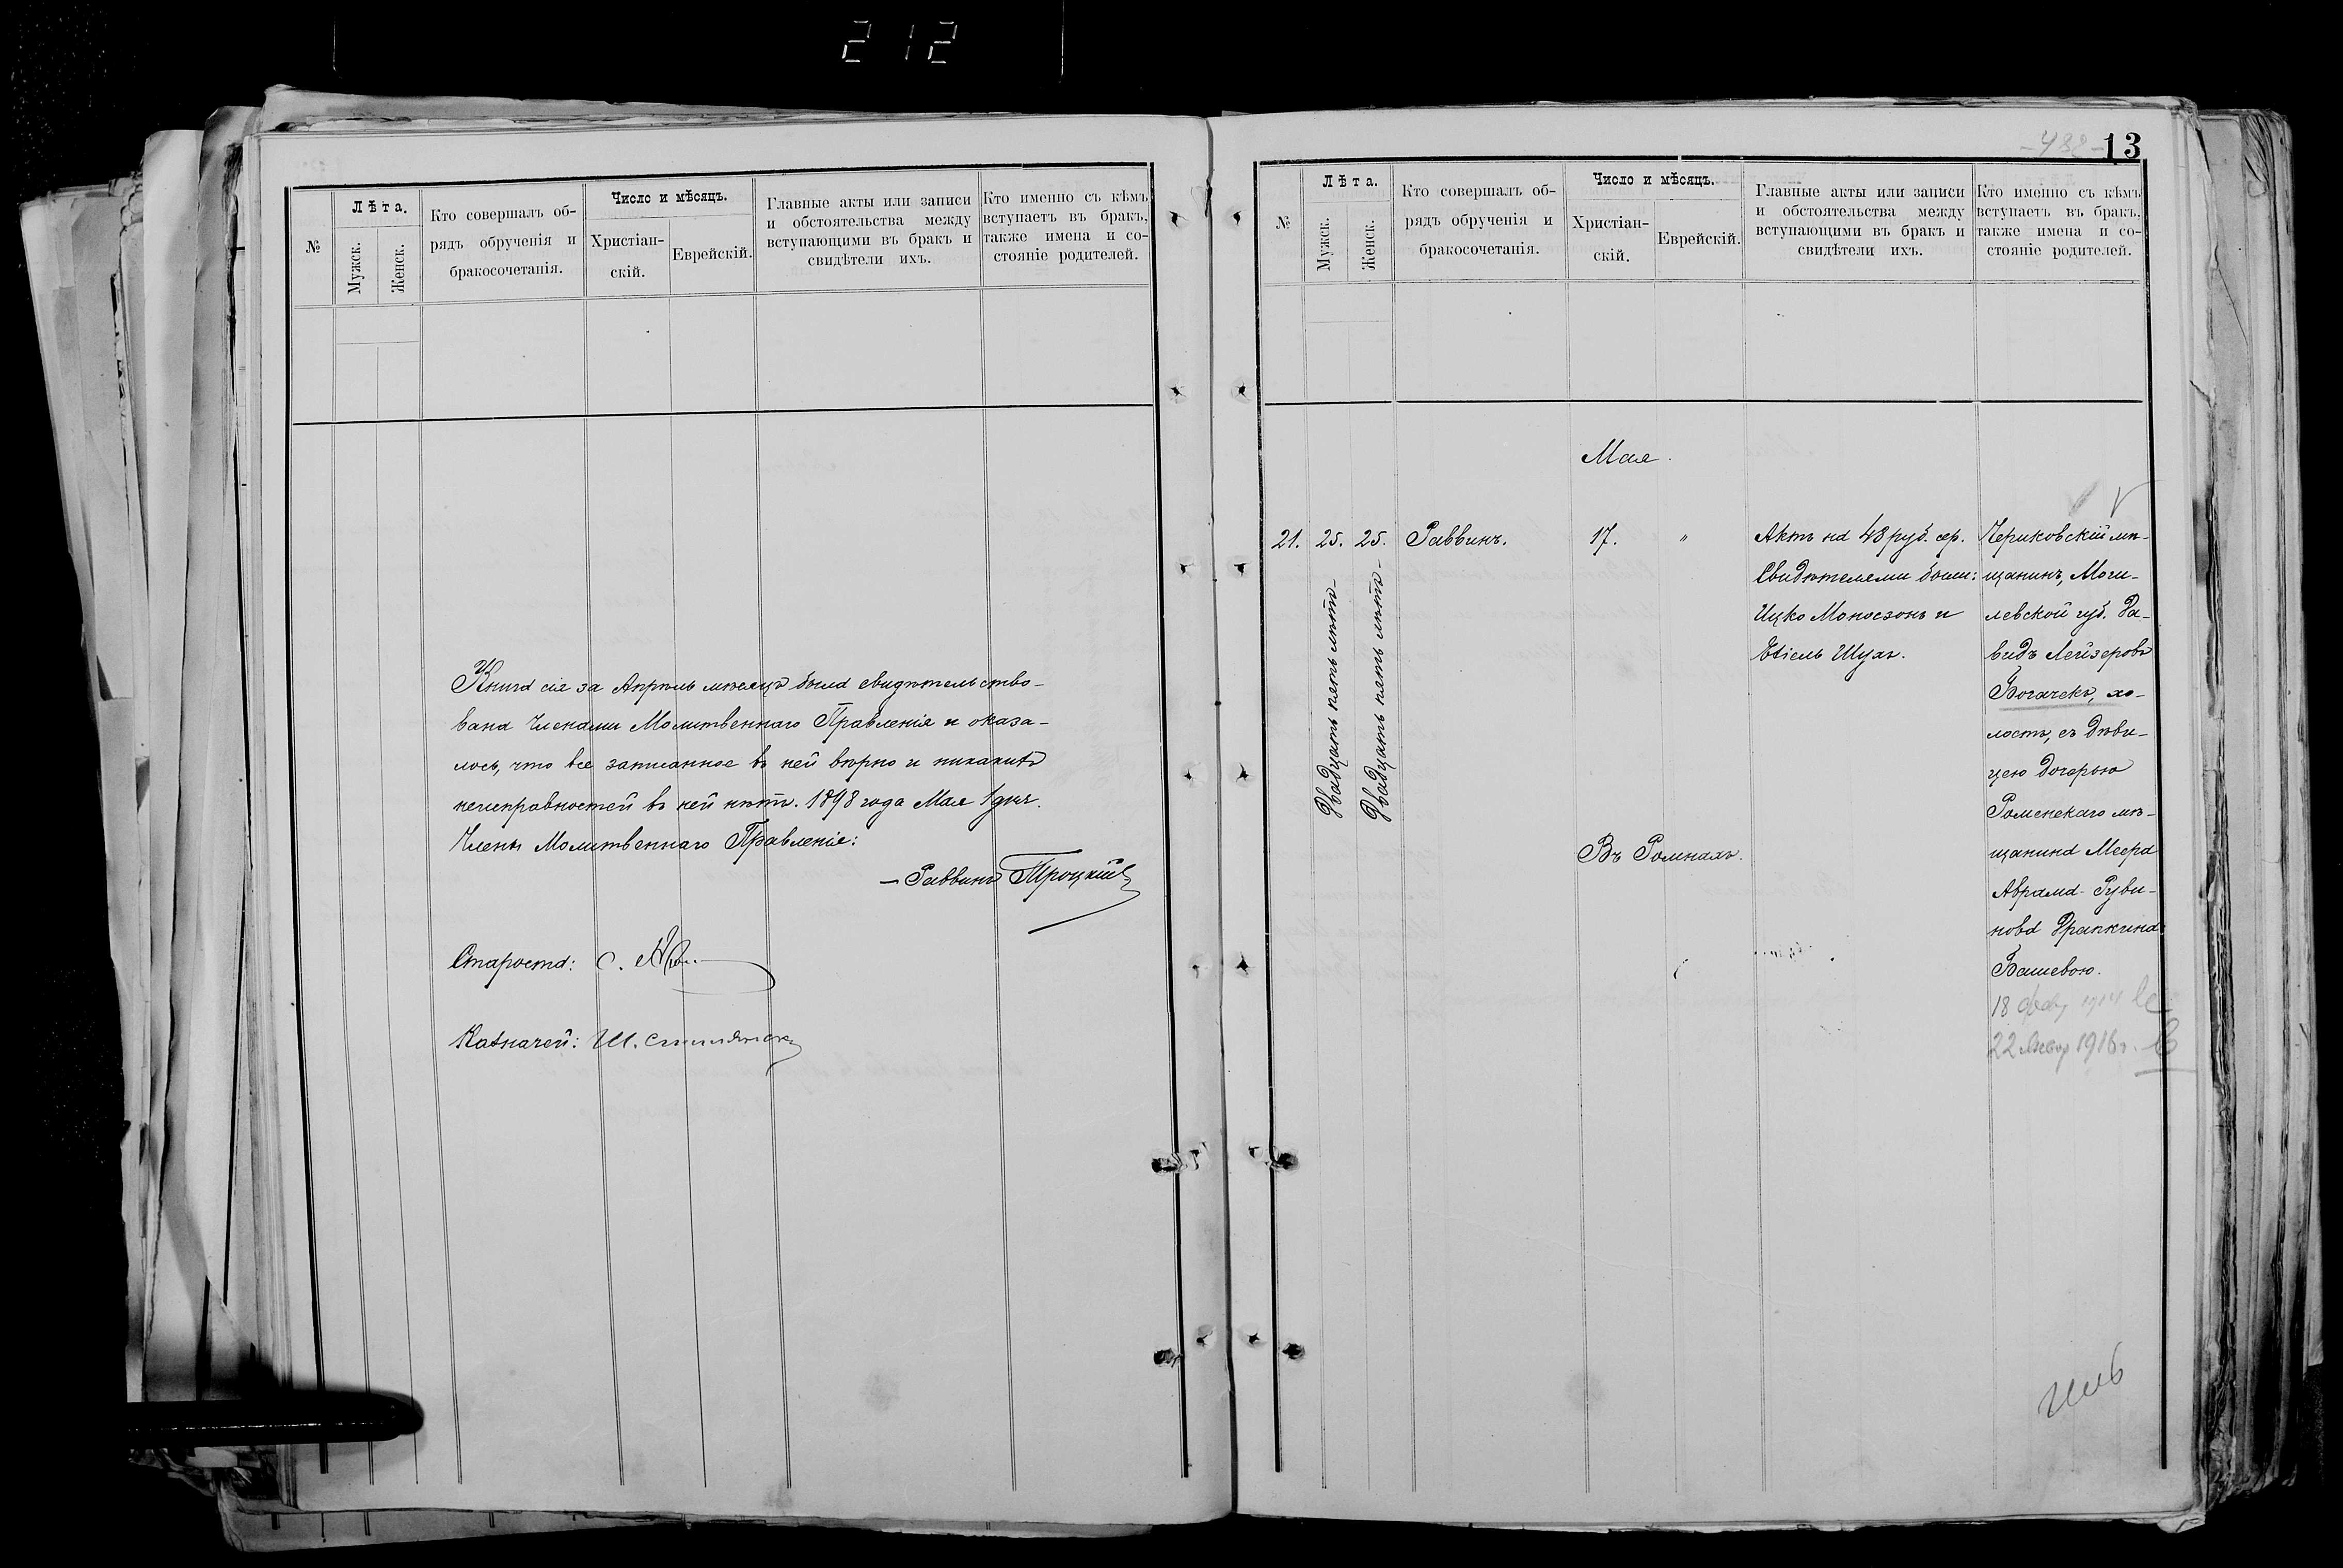 212
№
Лѣта.
Мужск.
Женск.
Кто совершалъ об-
рядъ обрученія и
бракосочетанія.
Число и мѣсяцъ.
Христіан-
скій.
Еврейскій.
Главные акты или записи
и обстоятельства между
вступающими въ бракъ и
свидѣтели ихъ.
Кто именно съ кѣмъ
вступаетъ въ бракъ,
также имена и со-
стояніе родителей.
Книга сія за Апрѣль мѣсяцъ была свидѣтельство-
вана Членами Молитвеннаго Правленія и оказа-
лось, что все записанное въ ней вѣрно и никакихъ
неисправностей въ ней нѣтъ. 1898 года Мая 1 дня.
Члены Молитвеннаго Правленія:
Раввинъ Троцкій
Староста: С.
Казначей: Ш.
13
№
Лѣта.
Мужск.
Женск.
Кто совершалъ об-
рядъ обрученія и
бракосочетанія.
Число и мѣсяцъ.
Христіан-
скій.
Еврейскій.
Главные акты или записи
и обстоятельства между
вступающими въ бракъ и
свидѣтели ихъ.
Кто именно съ кѣмъ
вступаетъ въ бракъ,
также имена и со-
стояніе родителей.
Мая
21. 25. 25. Раввинъ. 17. "
Двадцать пять лѣтъ
Двадцать пять лѣтъ
Въ Ромнахъ.
Актъ на 48 руб. сер.
Свидѣтелями были:
Ицко Моносзонъ и
Ехіель Шухъ.
Чериковскій мѣ-
щанинъ, Моги-
левской губ. Да-
видъ Лейзеровъ
Богачекъ, хо-
лостъ, съ дѣви-
цею дочерью
Роменскаго мѣ-
щанина Меера
Абрама-Руви-
нова Драпкина
Башевою.
18 1914
22 Январ 1916 г.